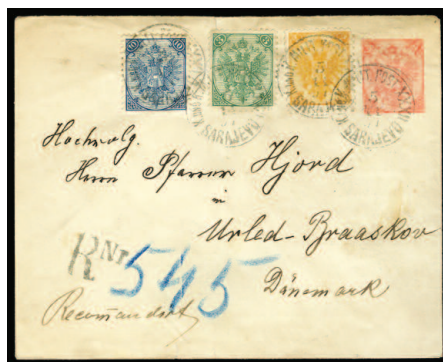 SARAJEVO SARAJEVO SARAJEVO
Hochwolg.
Herrn Pfarrer Hjord
in
Urled-Braaskov
Dänemark
RNr. 545
Recomandort